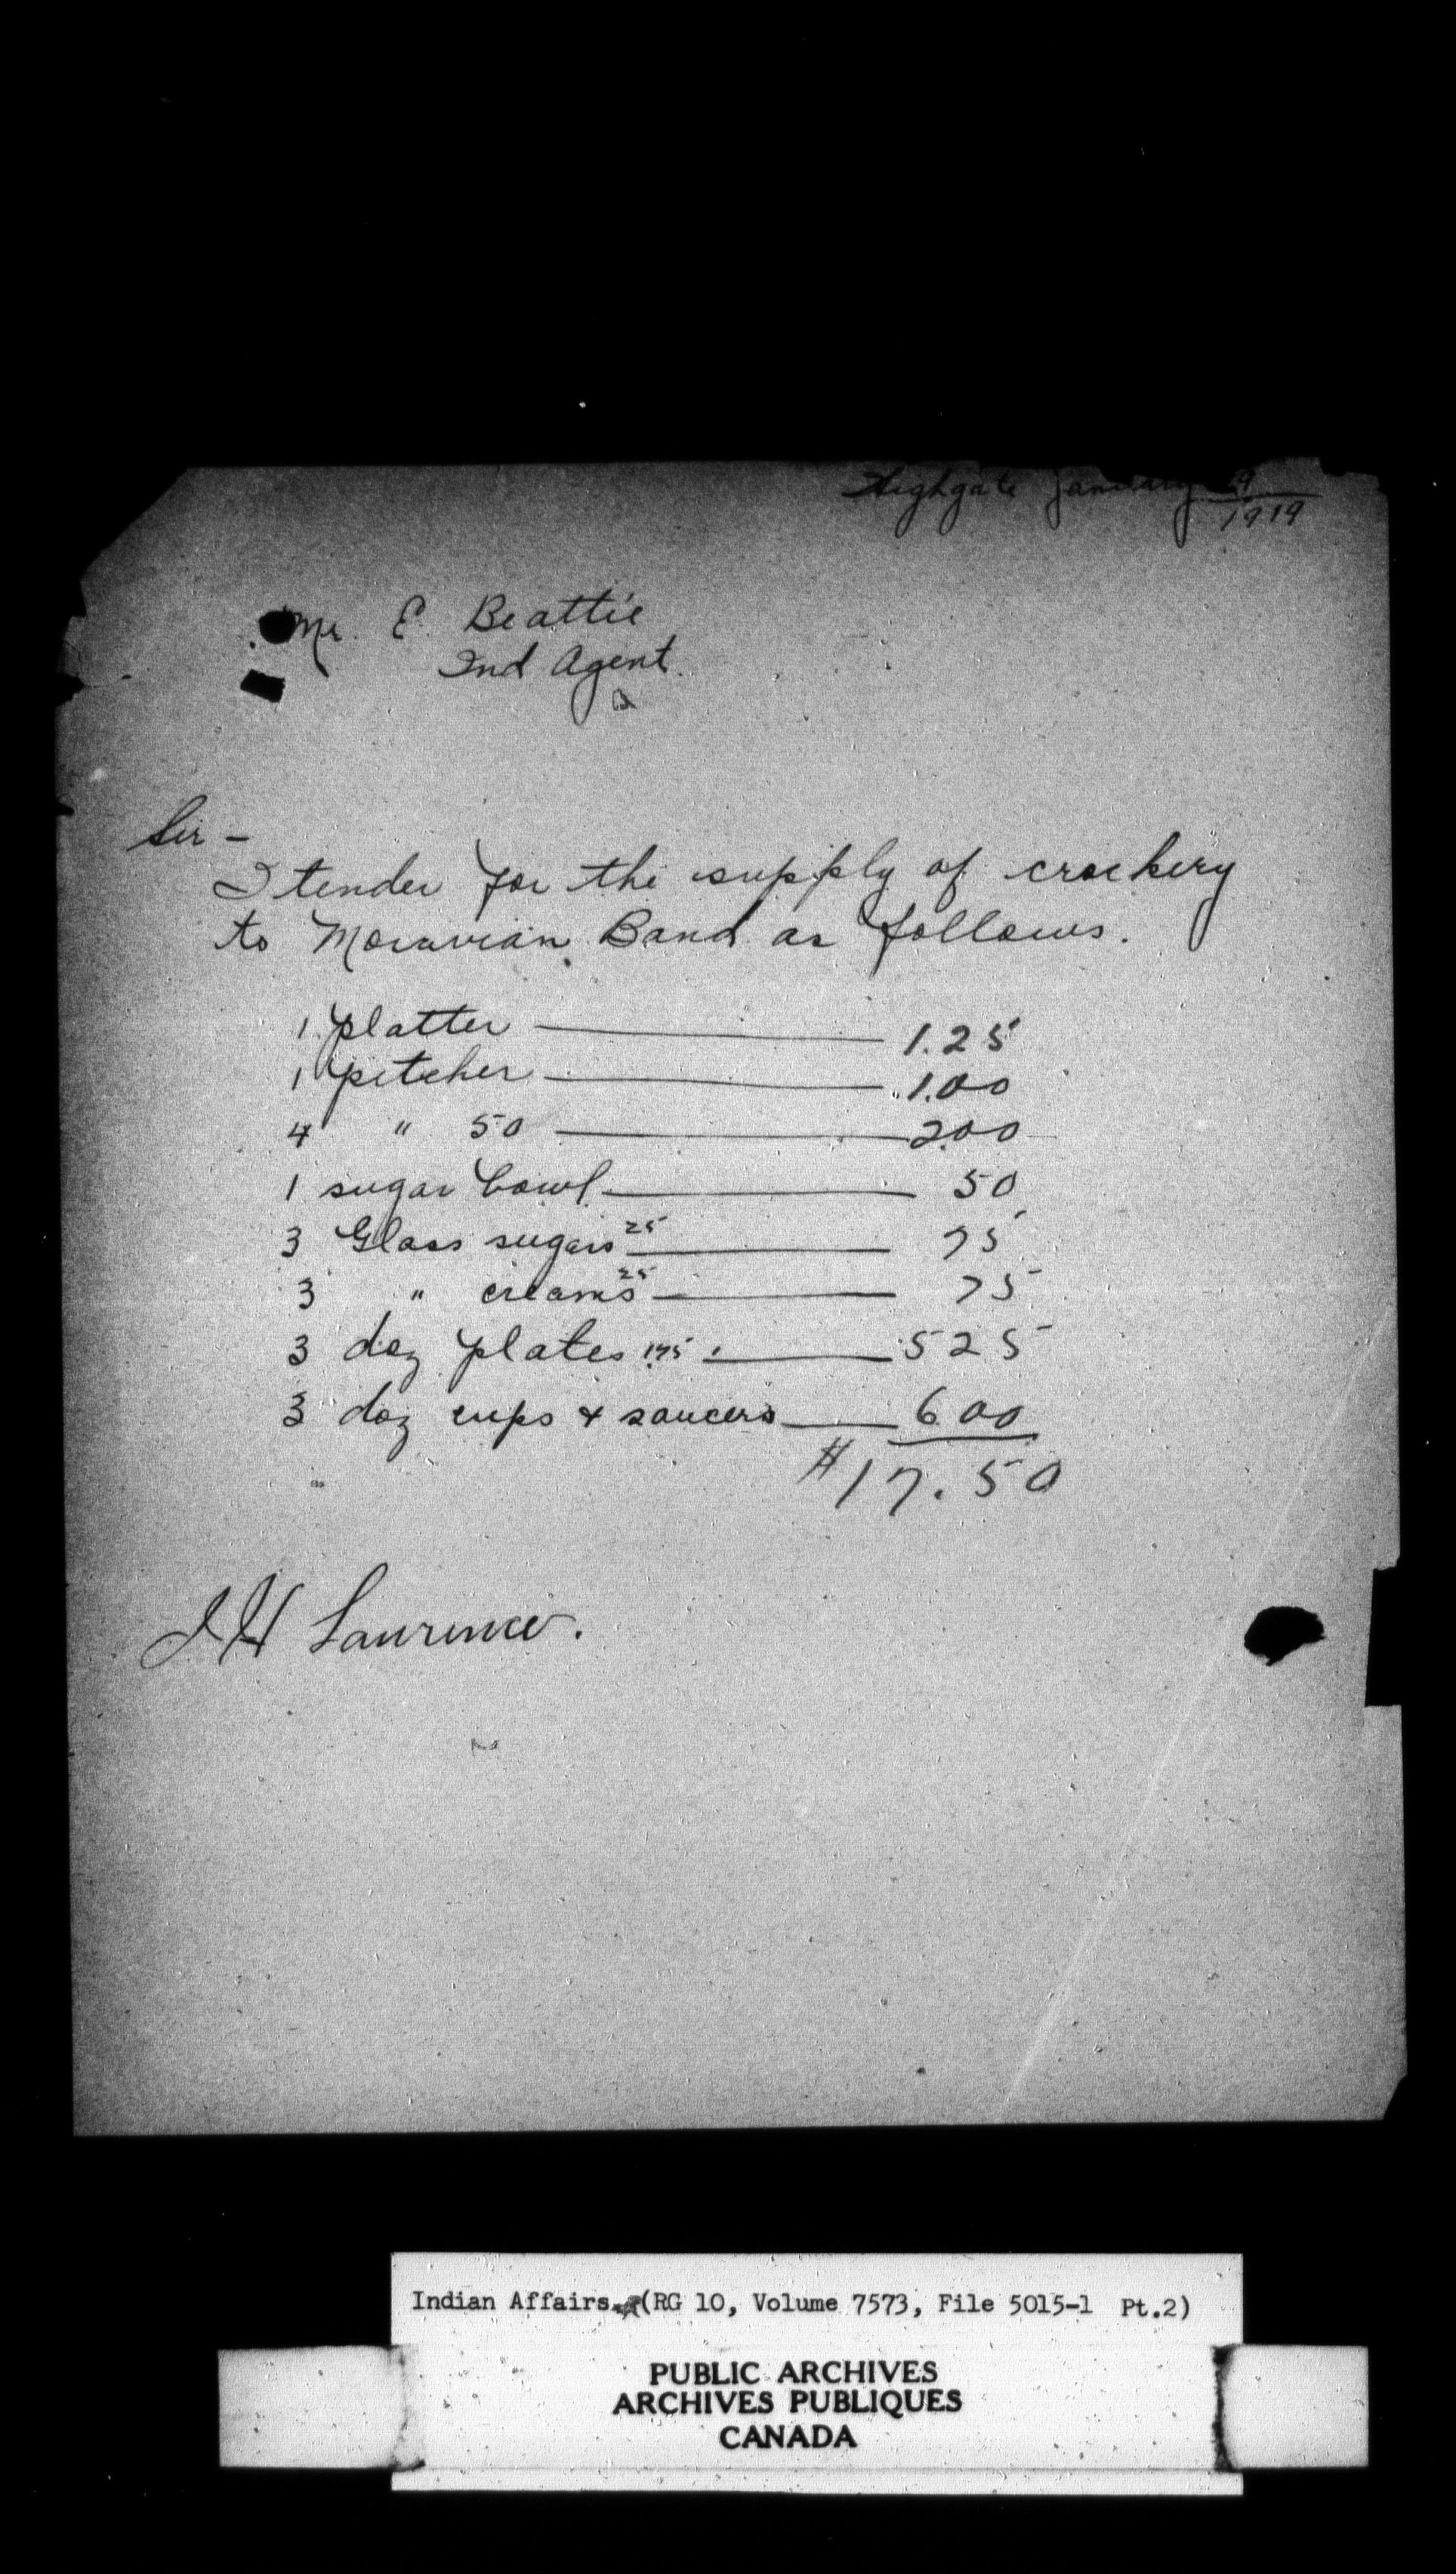 Highgate January 29
1919
Mr. E. Beattie
Ind Agent.
Sir -
I tender for the supply of crockery
to Moravian Band as follows.
1 platter 1.25
1 pitcher 1.00
4 " 50 2.00
1 sugar bowl 50
3 Glass sugars 25 75
3 " creams 25 75
3 doz plates 1.75 5 25
3 doz cups & saucers 6 00
$17.50
J H Laurence.
Indian Affairs. (RG 10, Volume 7573, File 5015-1 Pt.2)
PUBLIC ARCHIVES
ARCHIVES PUBLIQUES
CANADA